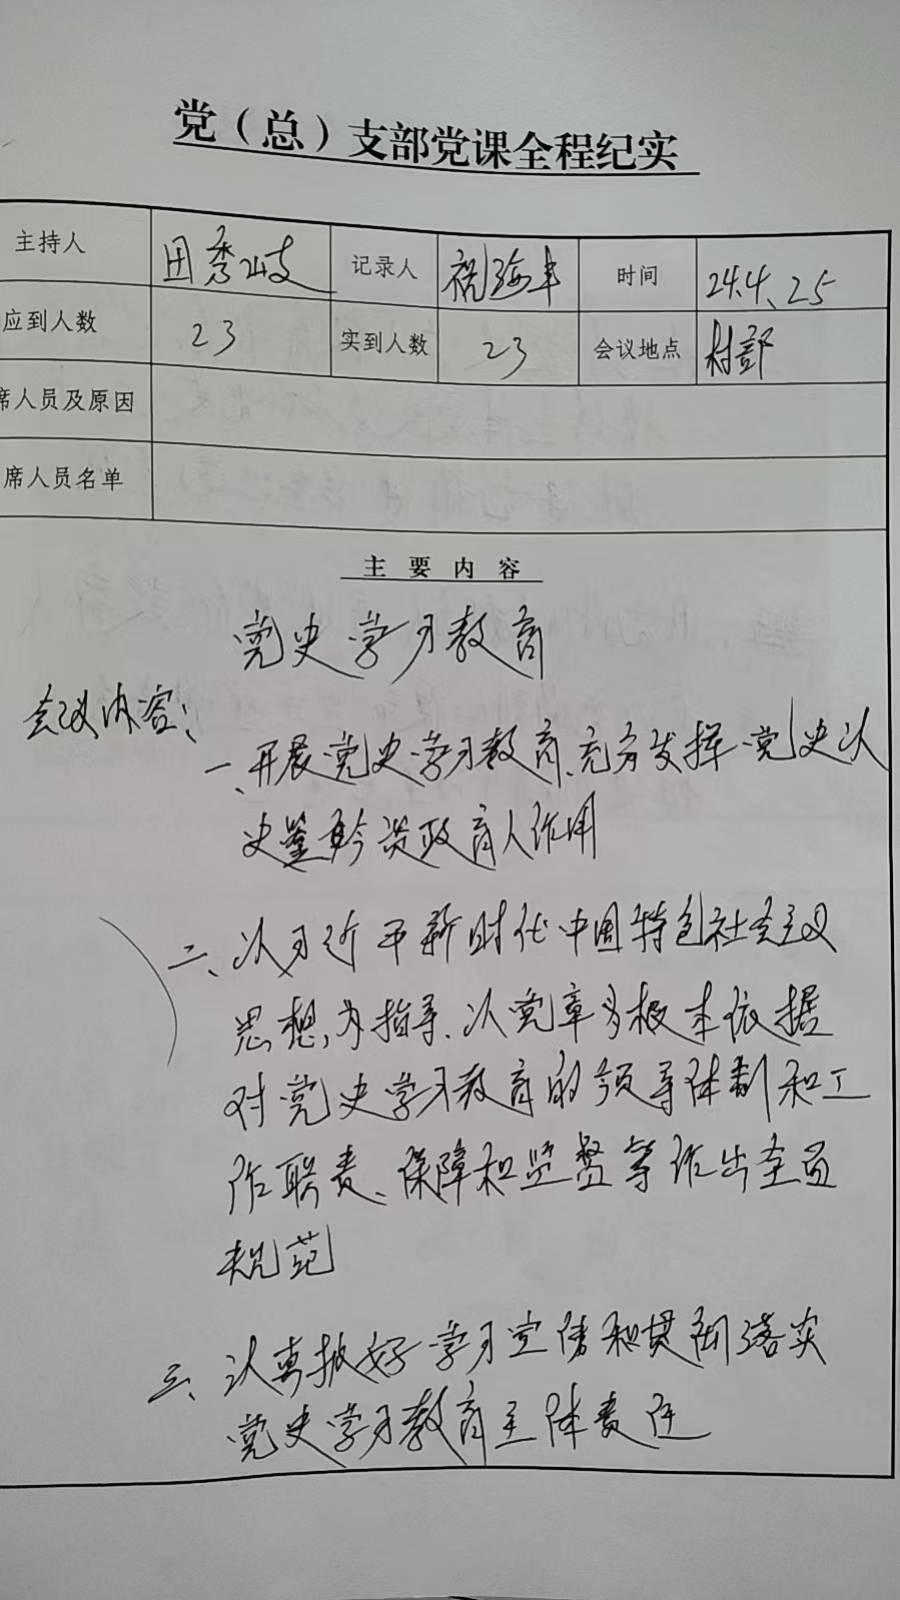 党（总）支部党课全程纪实
主持人 田秀岐 记录人 祝海丰 时间 24.4.25
应到人数 23 实到人数 23 会议地点 村部
席人员及原因
席人员名单
主要内容
党史学习教育
会议内容：
一、开展党史学习教育、充分发挥党史以
史鉴今资政育人作用
二、以习近平新时代中国特色社会主义
思想，为指导、以党章为根本依据
对党史学习教育的领导体制和工
作职责、保障和监督等作出全面
规范
三、认真抓好学习宣传和贯彻落实
党史学习教育主体责任